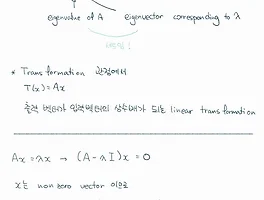 eigenvalue of A eigenvector corresponding to λ
* Transformation 관점에서
T(x) = Ax
출력 벡터가 입력벡터의 상수배가 되는 linear transformation
Ax = λx → (A-λI)x = 0
x는 non zero vector 이므로